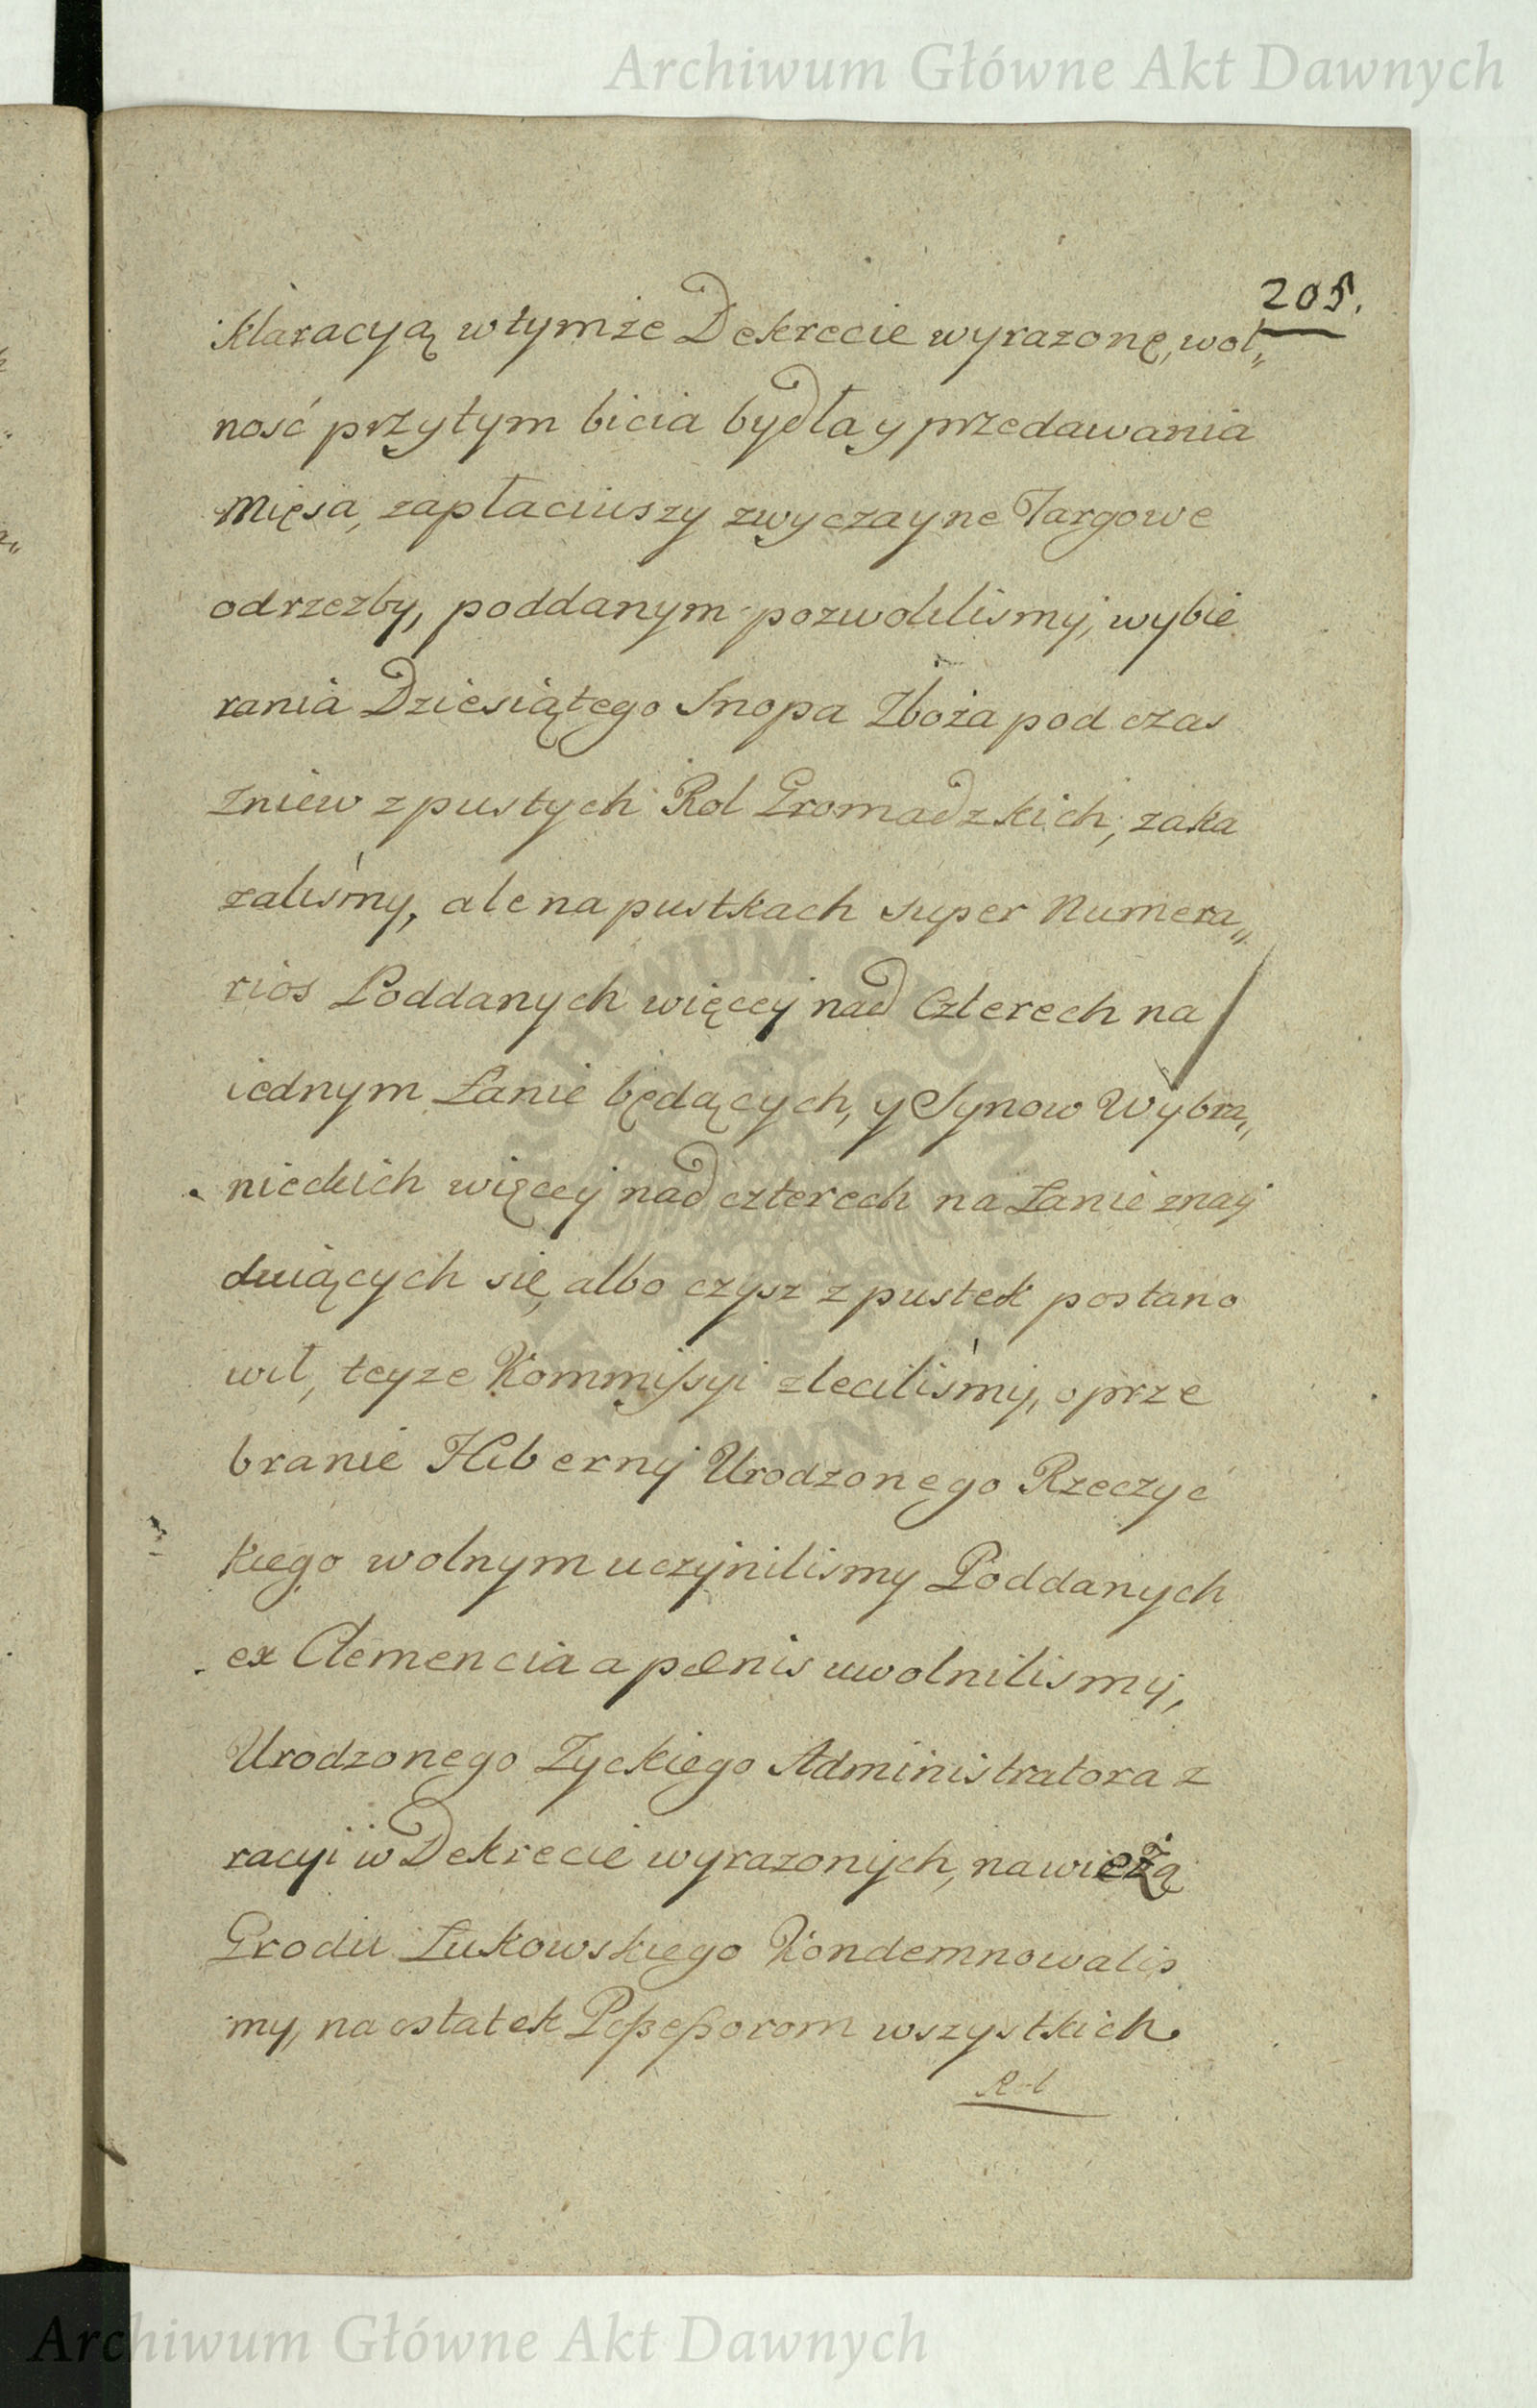 Archiwum Główne Akt Dawnych
205.
klaracyą w tymże Dekrecie wyrazonę, wol„
ność przytym bicia bydła y przedawania
Mięsa, zapłaciwszy zwyczayne Targowe
od rzezby, poddanym pozwolilismy, wybie
rania Dziesiątego Snopa Zboża pod czas
Zniew z pustych Rol Gromadzkich, zaka
zaliśmy, ale na pustkach super Numera„
rios Poddanych więcey nad Czterech na
iednym Łanie będących, y Synow Wybra„
nieckich więcey nad czterech na Łanie znay
duiących się, albo czysz z pustek postano
wił, teyze Kommissyi zleciliśmy, o prze
branie Hiberny Urodzonego Rzeczyc
kiego wolnym uczynilismy Poddanych
ex Clemencia a pænis uwolnilismy,
Urodzonego Zyckiego Administratora z
racyi w Dekrecie wyrazonych, na wieżą
Grodu Łukowskiego Kondemnowalis
my, na ostatek Poßeßorom wszystkich
ARCHIWUM GŁÓWNE AKT DAWNYCH
Archiwum Główne Akt Dawnych